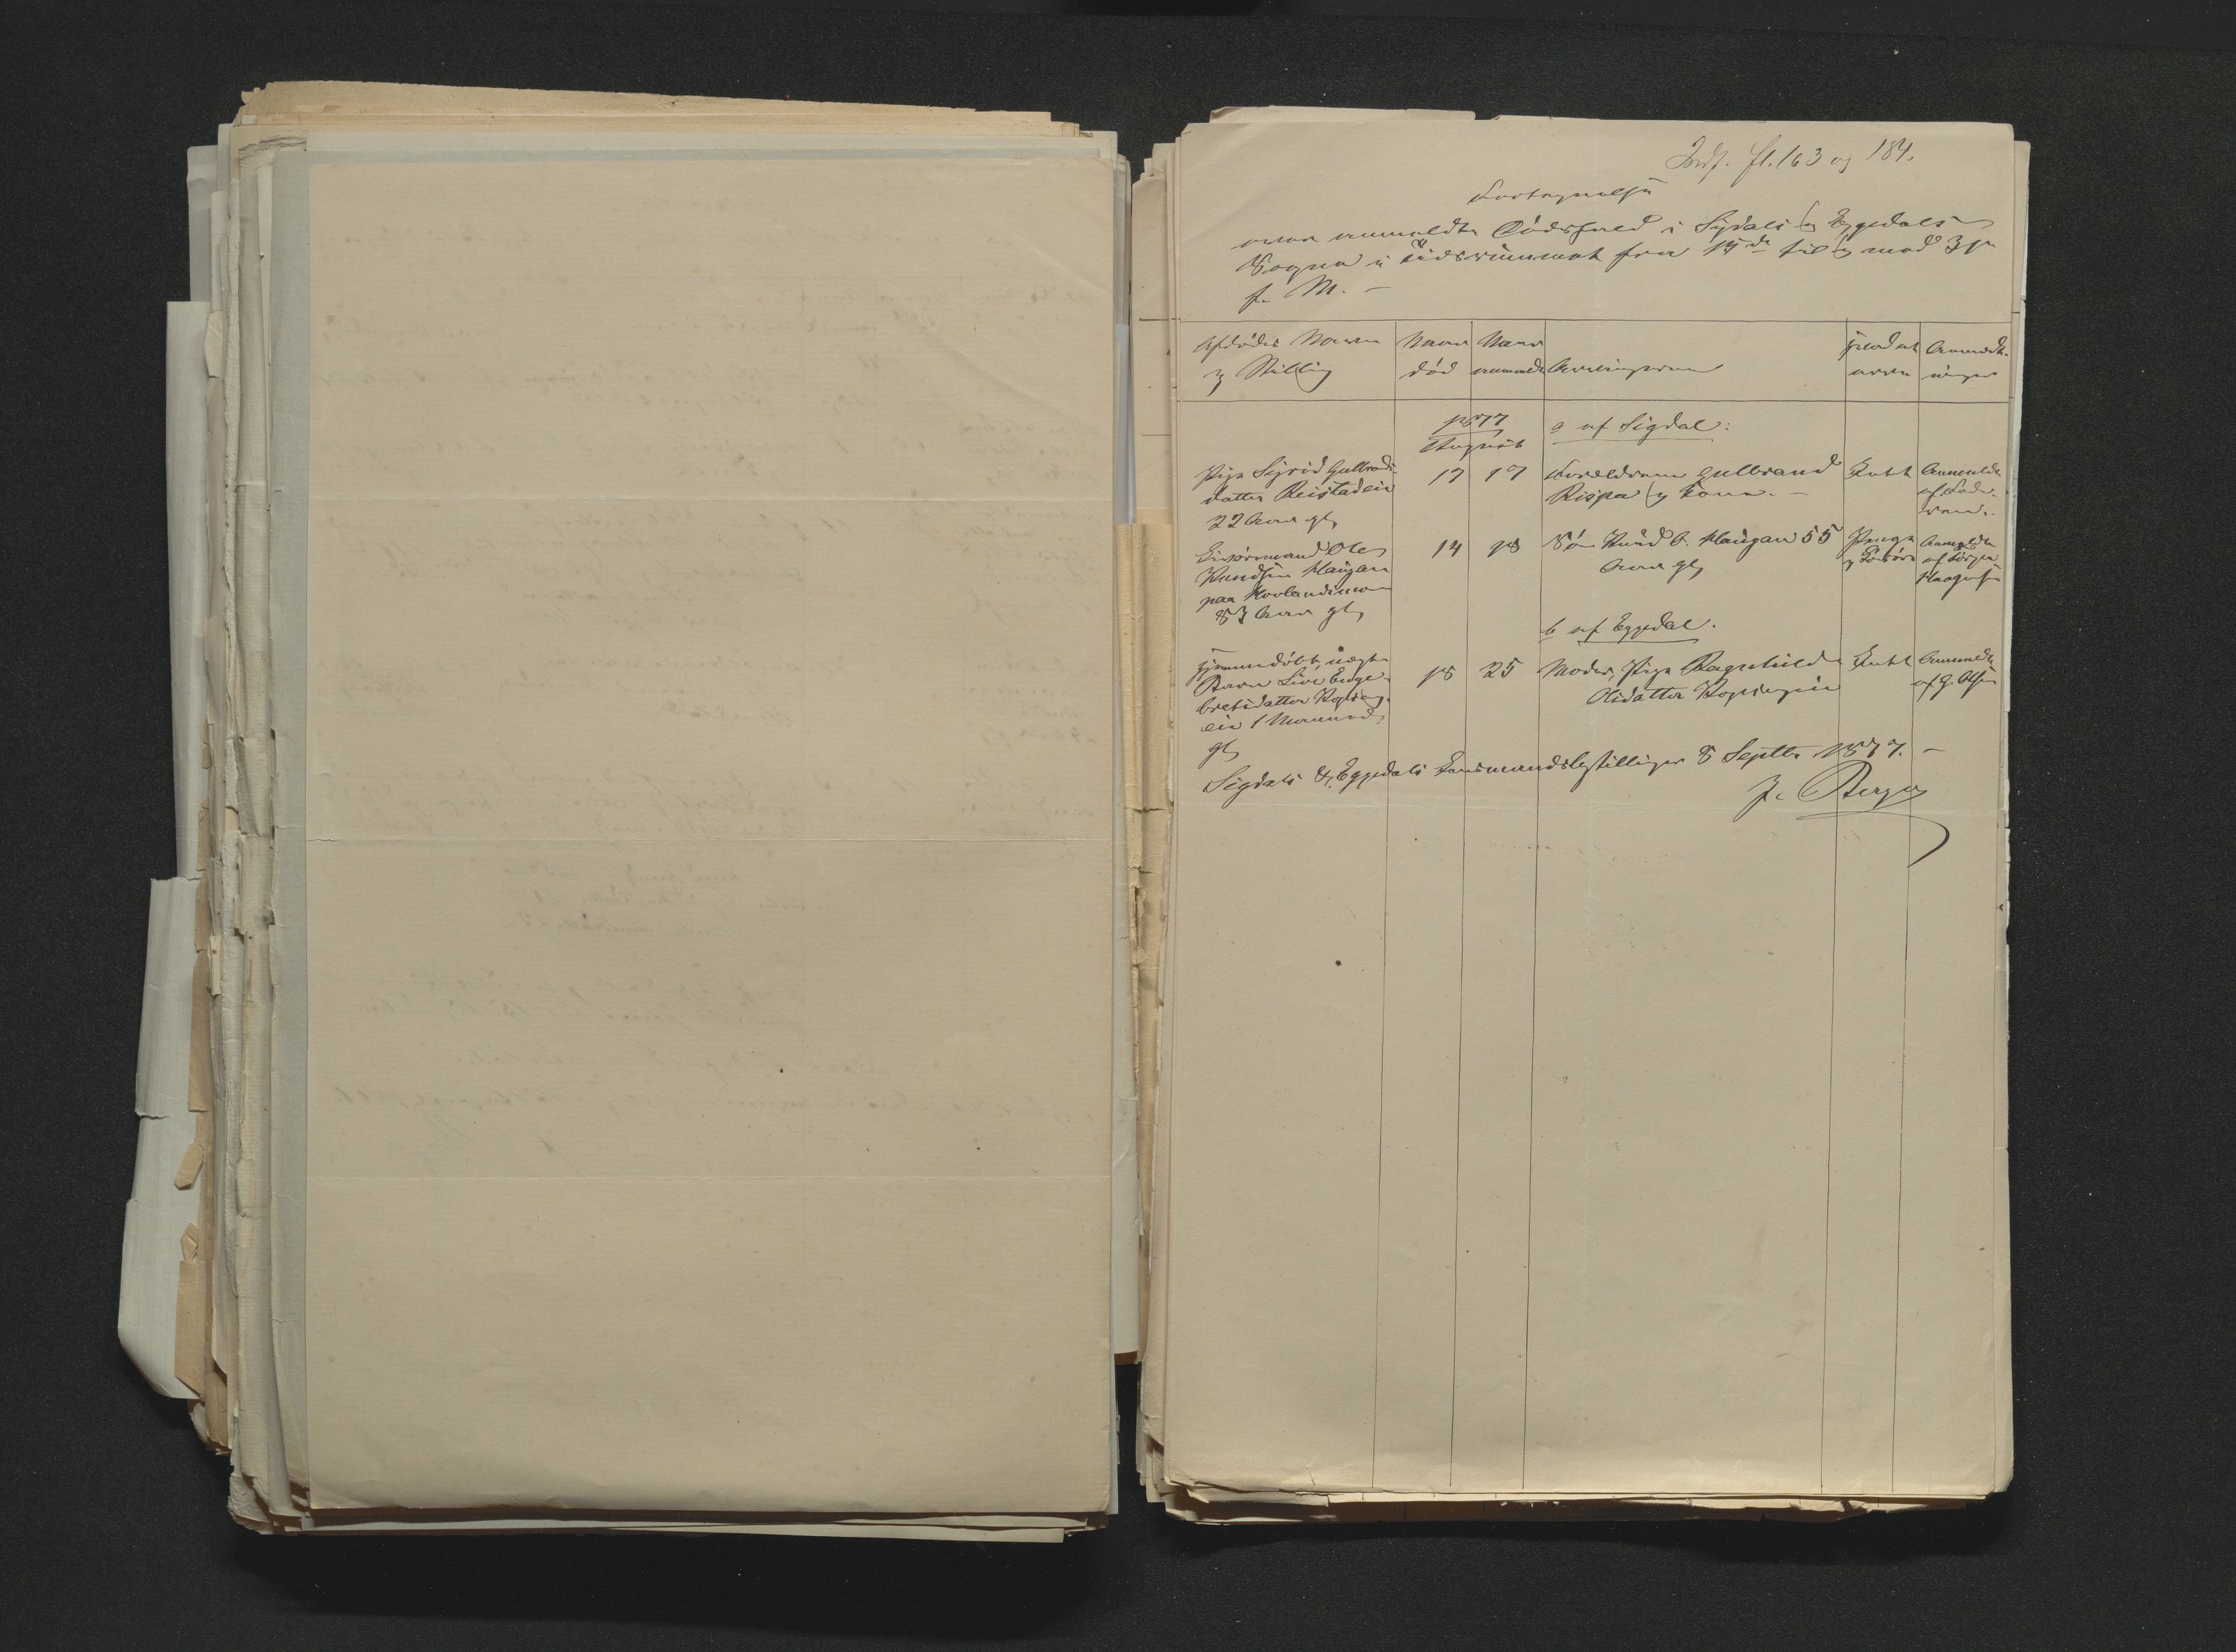 Indf. fl. 163 og 184.
Fortegnelse
over anmeldte Dødsfald i Sigdals og Eggedals
Sogne i Tidsrummet fra 15de til og med 31te
f. M. –
Afdødes Navn
og Stilling
Naar
død
Naar
anmeldt
Arvingerne
hvad at
arve
Anmærk-
ninger
1877
August
a af Sigdal:
Pige Sigrid Gulbrands-
datter Reistadeie
22 Aar gl
17
17
Forældrene Gulbrand
Rispa og Kone. –
Intet
Anmeldt
af Fade-
ren.
Ole
Knudsen Haugan
paa
83 Aar gl
14
18
Søn Knud O. Haugan 55
Aar gl
Penge
og Løsøre
Anmeldt
af
b af Eggedal.
hjemmedøbt uægte
Barn Live Enge-
bretsdatter
eie 1 Maaned
gl
18
25
Moder, Pige Ragnhild
Olsdatter
Intet
Anmeldt
af G. Olsen
Sigdals & Eggedals Lensmandsbestilling 8 Septbr 1877. –
Berger